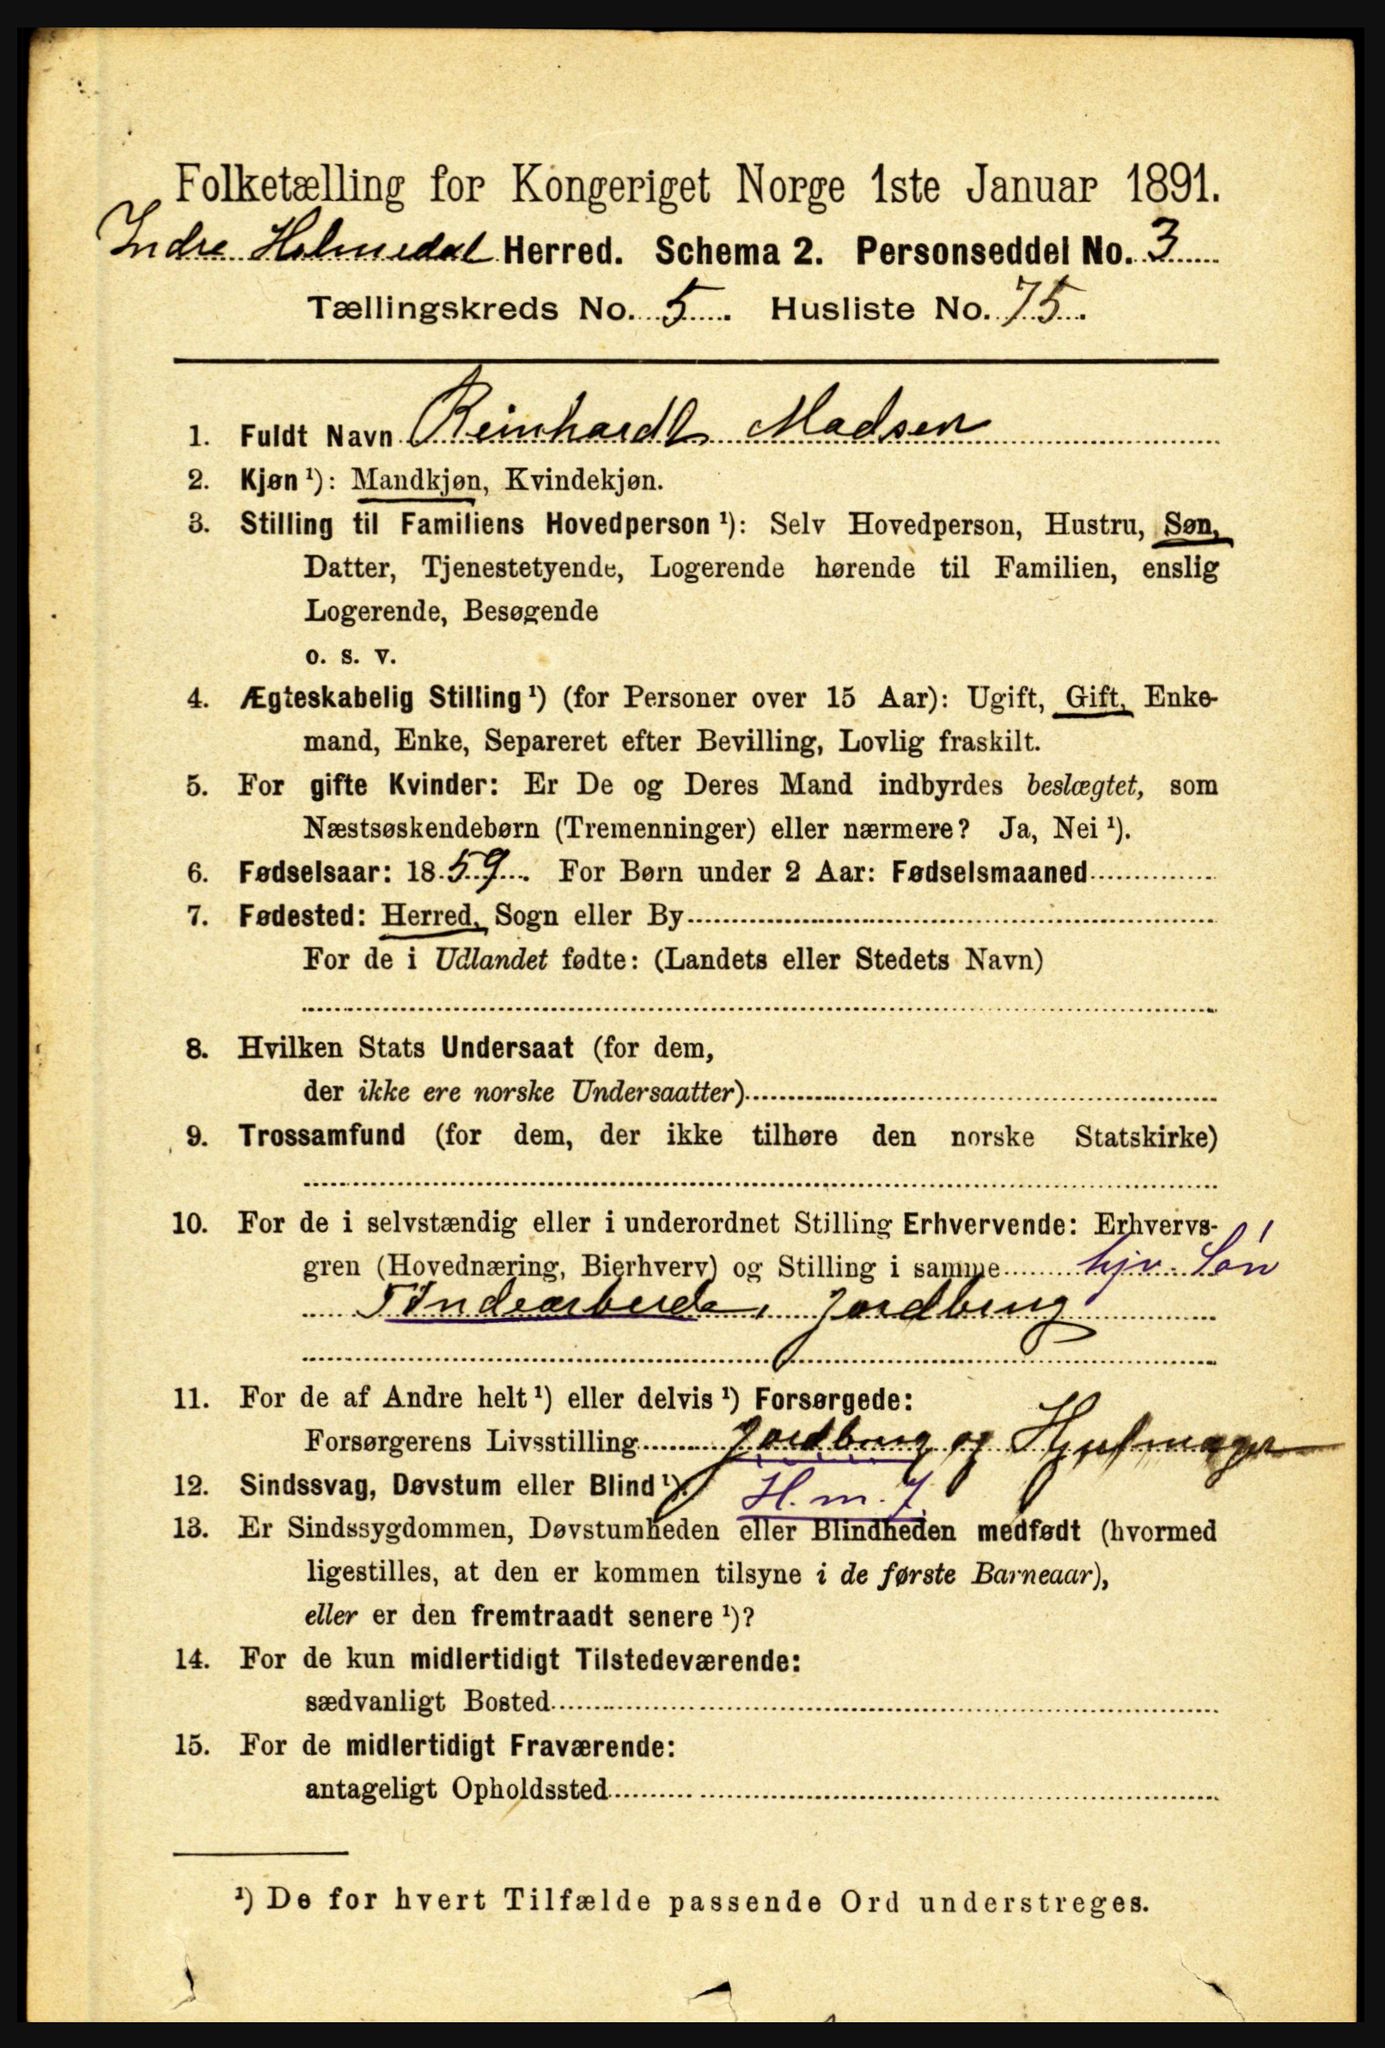 Folketælling for Kongeriget Norge 1ste Januar 1891.
Indre Holmedal Herred. Schema 2. Personseddel No. 3
Tællingskreds No. 5. Husliste No. 75.
1. Fuldt Navn Reinhardt Madsen
2. Kjøn ¹): Mandkjøn, Kvindekjøn.
3. Stilling til Familiens Hovedperson ¹): Selv Hovedperson, Hustru, Søn,
Datter, Tjenestetyende, Logerende hørende til Familien, enslig
Logerende, Besøgende
o. s. v.
4. Ægteskabelig Stilling ¹) (for Personer over 15 Aar): Ugift, Gift, Enke-
mand, Enke, Separeret efter Bevilling, Lovlig fraskilt.
5. For gifte Kvinder: Er De og Deres Mand indbyrdes beslægtet, som
Næstsøskendebørn (Tremenninger) eller nærmere? Ja, Nei ¹).
6. Fødselsaar: 1859. For Børn under 2 Aar: Fødselsmaaned
7. Fødested: Herred, Sogn eller By
For de i Udlandet fødte: (Landets eller Stedets Navn)
8. Hvilken Stats Undersaat (for dem,
der ikke ere norske Undersaatter)
9. Trossamfund (for dem, der ikke tilhøre den norske Statskirke)
10. For de i selvstændig eller i underordnet Stilling Erhvervende: Erhvervs-
gren (Hovednæring, Bierhverv) og Stilling i samme hjv. Søn
Jordbrug
11. For de af Andre helt ¹) eller delvis ¹) Forsørgede:
Forsørgerens Livsstilling Jordbrug og Hjulmager
12. Sindssvag, Døvstum eller Blind ¹). H. m. 7
13. Er Sindssygdommen, Døvstumheden eller Blindheden medfødt (hvormed
ligestilles, at den er kommen tilsyne i de første Barneaar),
eller er den fremtraadt senere ¹)?
14. For de kun midlertidigt Tilstedeværende:
sædvanligt Bosted
15. For de midlertidigt Fraværende:
antageligt Opholdssted
¹) De for hvert Tilfælde passende Ord understreges.